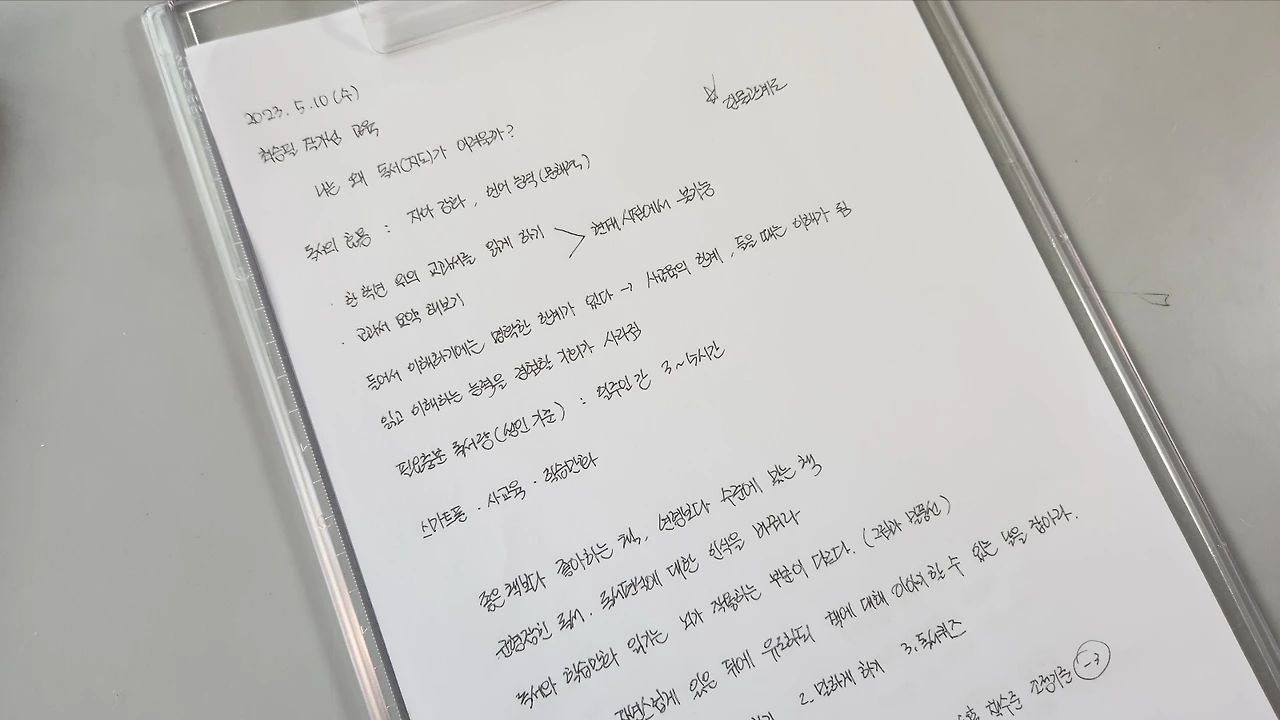 2023. 5. 10 (수)
최승필 작가님 교육
나는 왜 독서(지도)가 어려울까?
독서의 효용 : 자아 강화, 언어 능력(문해력)
· 한 학년 위의 교과서를 읽게 하기 > 현재 시점에서 불가능
· 교과서 요약 해보기
들어서 이해하기에는 명확한 한계가 있다 → 사교육의 한계, 들을 때는 이해가 됨
읽고 이해하는 능력을 경험할 기회가 사라짐
필요충분 독서량(성인 기준) : 일주일 간 3~4시간
스마트폰 · 사교육 · 학습만화
좋은 책보다 좋아하는 책, 연령보다 수준에 맞는 책
독서 · 독서편식에 대한 인식을 바꿔라
독서와 학습만화 읽기는 뇌가 작용하는 부분이 다르다. (그림과 말풍선)
자연스럽게 있은 뒤에 유도하되 책에 대해 이야기할 수 있는 날을 잡아라.
2. 말하게 하기 3. 독서퀴즈
책수준 고정기준 -3